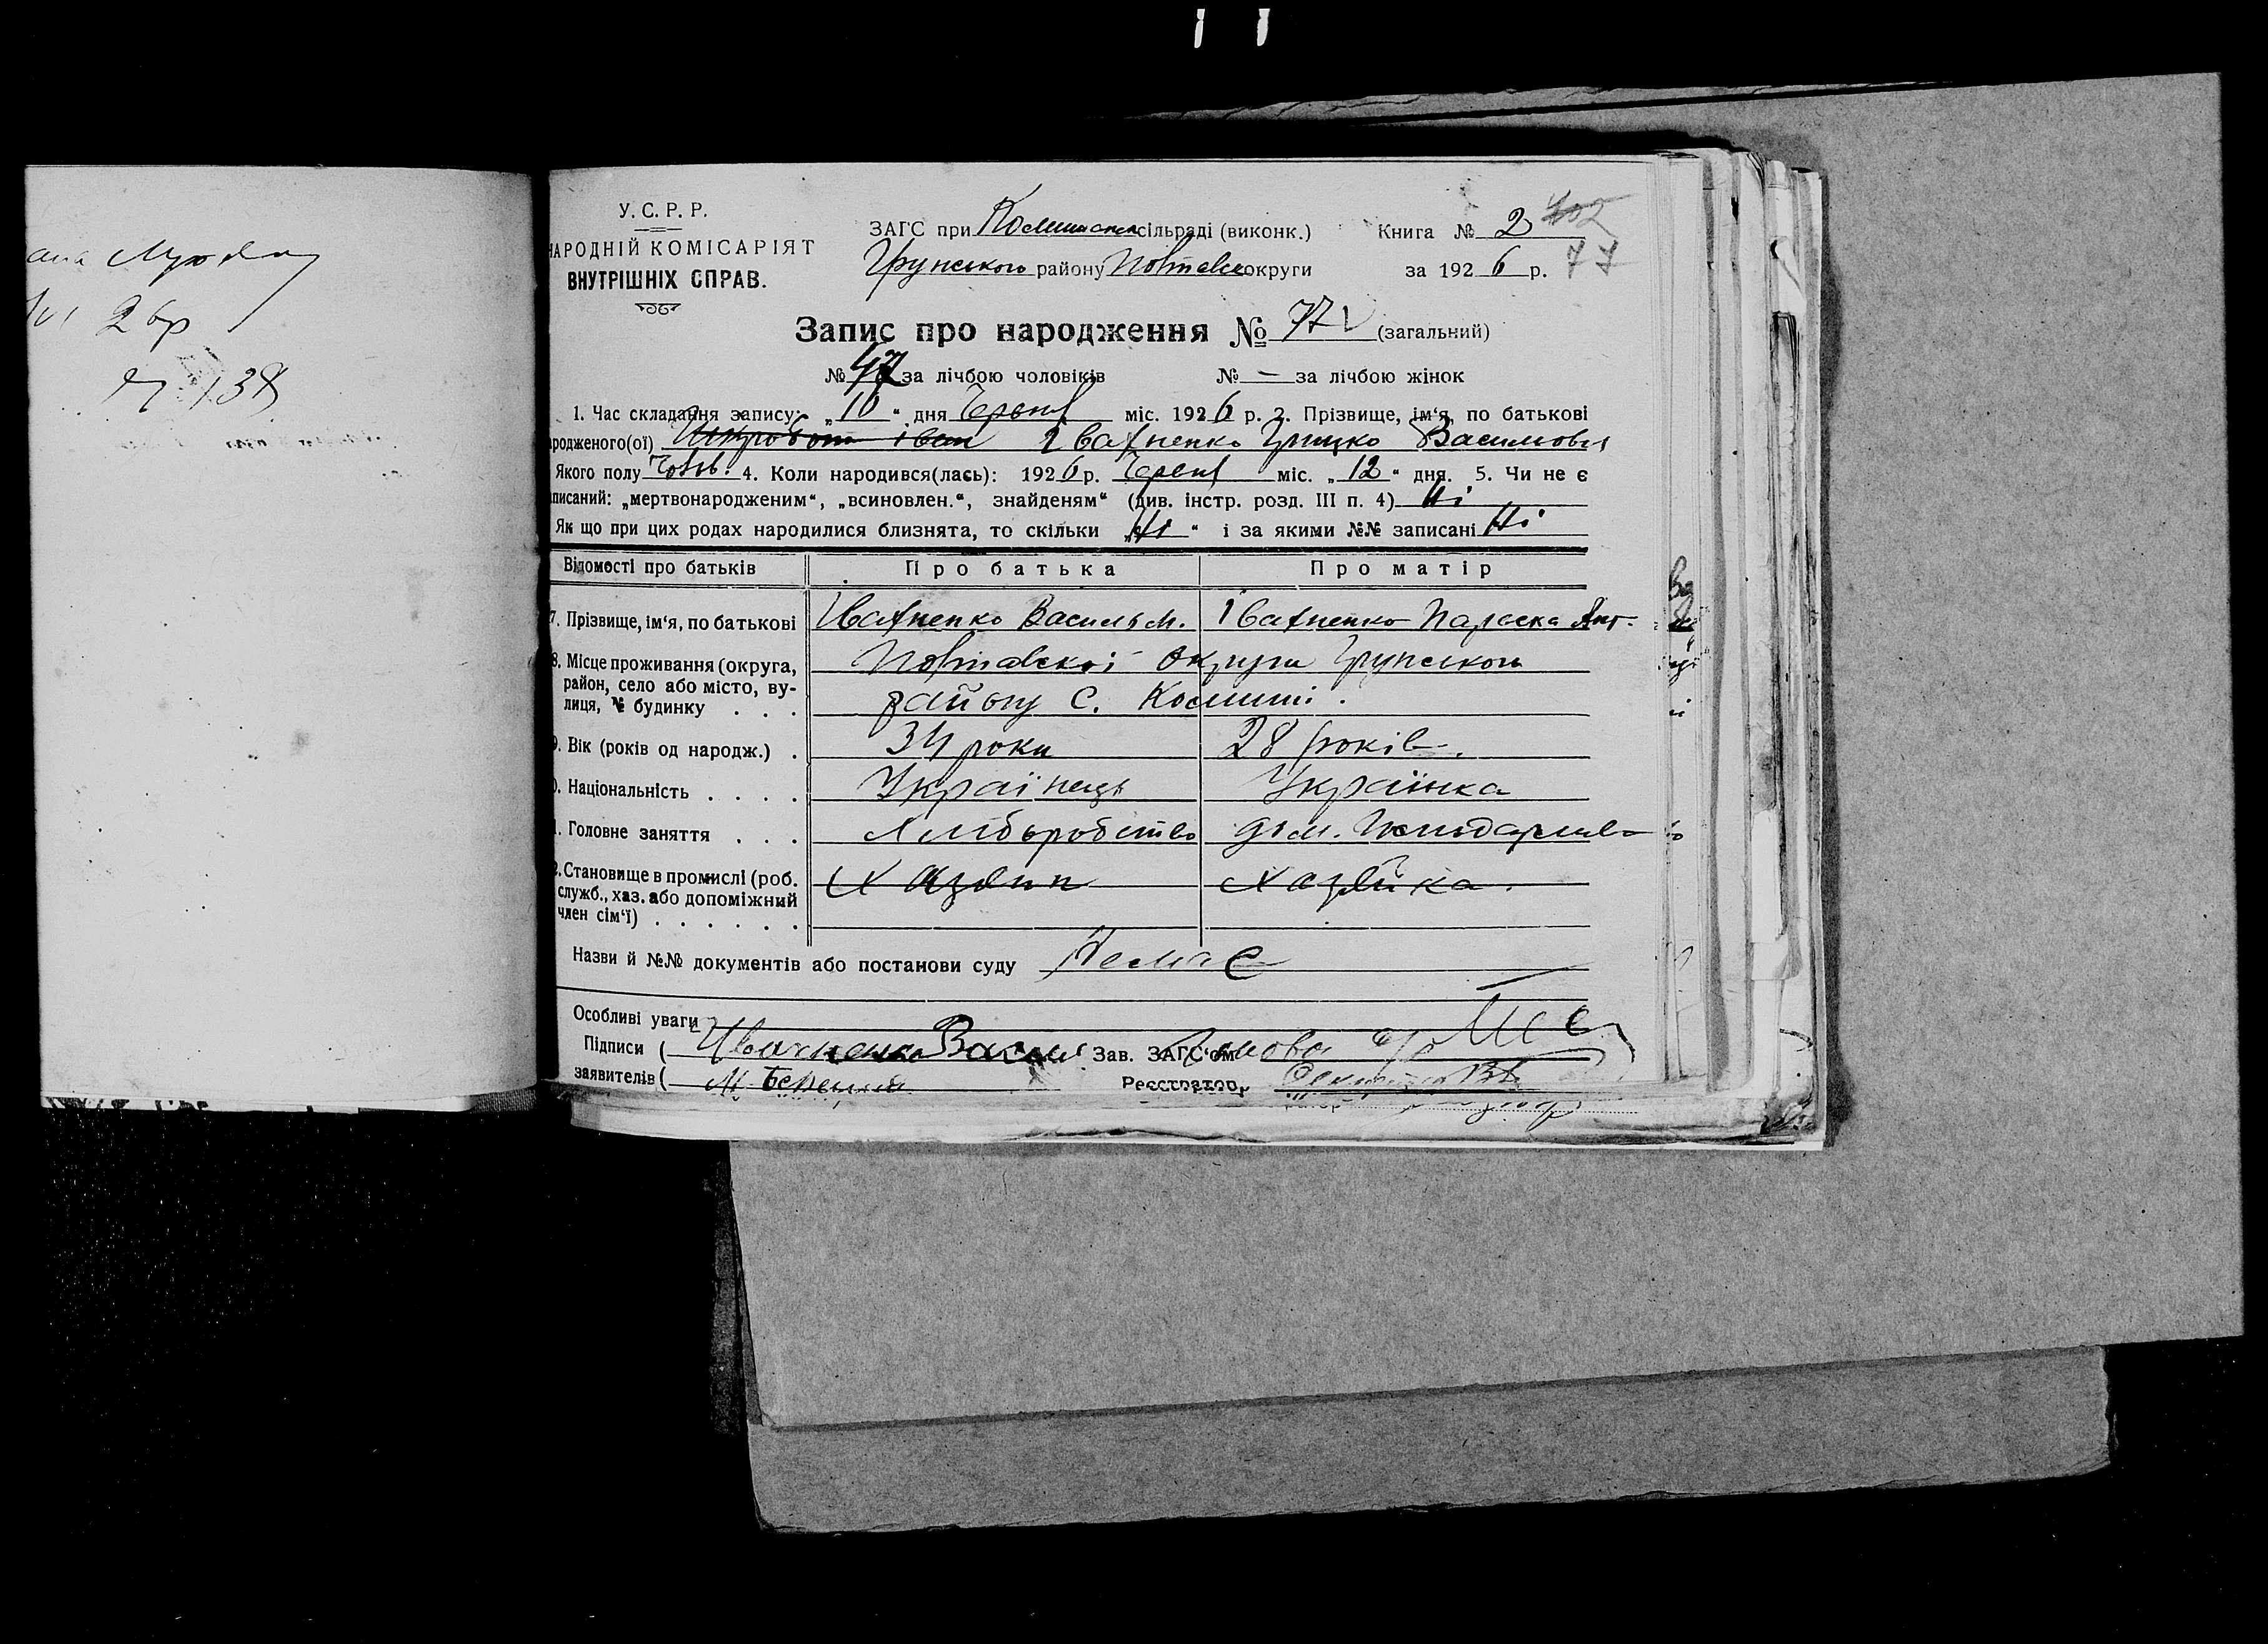 У. С. Р. Р.
НАРОДНІЙ КОМІСАРІЯТ
ВНУТРІШНІХ СПРАВ.
ЗАГС при сільраді (виконк.) Книга № 2
Грунського району Полтавс округи за 1926 р. 77
Запис про народження № 77 (загальний)
№ 47 за лічбою чоловіків № — за лічбою жінок
1. Час складання запису: „10“ дня Черв міс. 1926 р. 2. Прізвище, ім‘я, по батькові
родженого(ої) Іван Івахненко Грицко Васильович
Якого полу Чолов. 4. Коли народився(лась): 1926 р. Черв міс. „12“ дня. 5. Чи не є
аписаний: „мертвонародженим“, „всиновлен.“, знайденям“ (див. інстр. розд. III п. 4) Ні
Як що при цих родах народилися близнята, то скільки „Ні“ і за якими №№ записані Ні
Відомості про батьків Про батька Про матір
7. Прізвище, ім‘я, по батькові Івахненко Василь М. Івахненко Параска Ант.
8. Місце проживання (округа, Полтавської округи Грунського
район, село або місто, ву-
лиця, № будинку . . . району с. Комиші.
9. Вік (років од народж.) . 34 роки 28 років.
0. Національність . . . . Українець Українка
1. Головне заняття . . . Хліборобство дом. Господарство
2. Становище в промислі (роб. Хазяин Хазяйка.
служб., хаз. або допоміжний
член сім‘ї) . . . . . .
Назви й №№ документів або постанови суду Немає
Особливі уваги
Підписи ( Ивахненко Васил Зав. ЗАГС‘ом Голова с/р
заявителів ( М. Реєстратор
2 бр
138